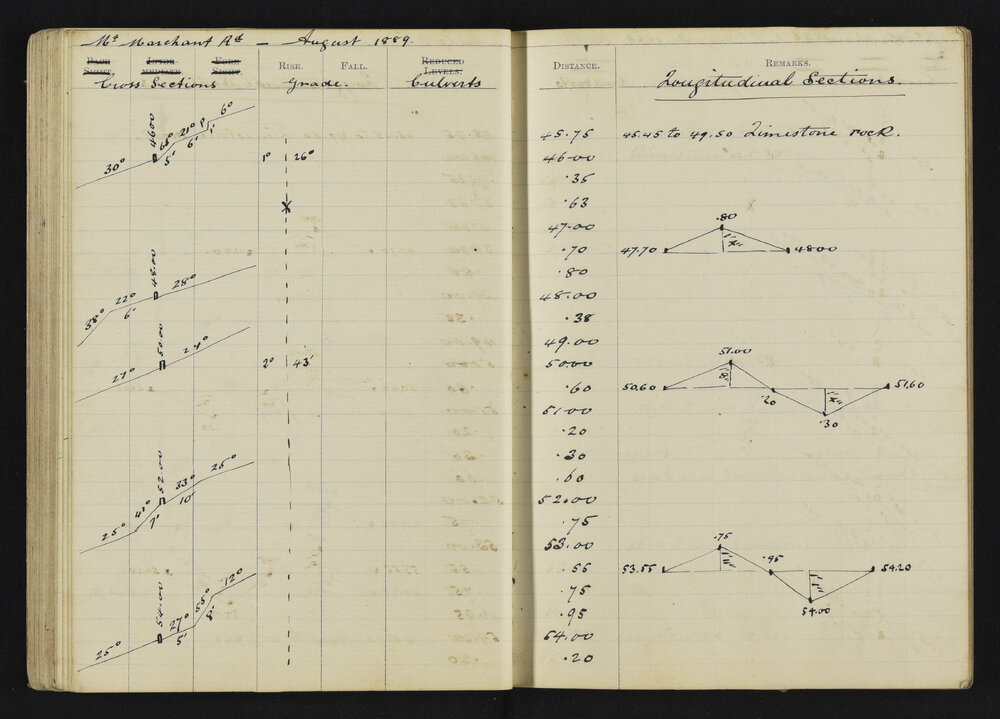 Mt Marchant Rd — August 1889.
BACK SIGHT. INTER-MEDIATE. FORE SIGHT. RISE. FALL. REDUCED LEVELS.
Cross Sections Grade. Culverts
30° 4600 68° 5' 21° 6' 1' 6°
1° 26°
38° 22° 6' 48.00 28°
27° 50.00 24°
2° 43'
25° 41° 7' 52.00 33° 10' 25°
25° 54.00 27° 5' 55° 8' 12°
DISTANCE. REMARKS.
Longitudinal Sections.
45.75 45.45 to 49.50 Limestone rock.
46.00
.35
.63
47.00
.80
.70 47.70 4800
.80
48.00
.38
49.00
51.00
5000
.60 50.60 1'8" .20 51.60
51.00
.30
.20
.30
.60
52.00
.75
53.00
.75 .95
.55 53.55 1'11" 1'1" 54.20
.75
.95
54.00
54.00
.20